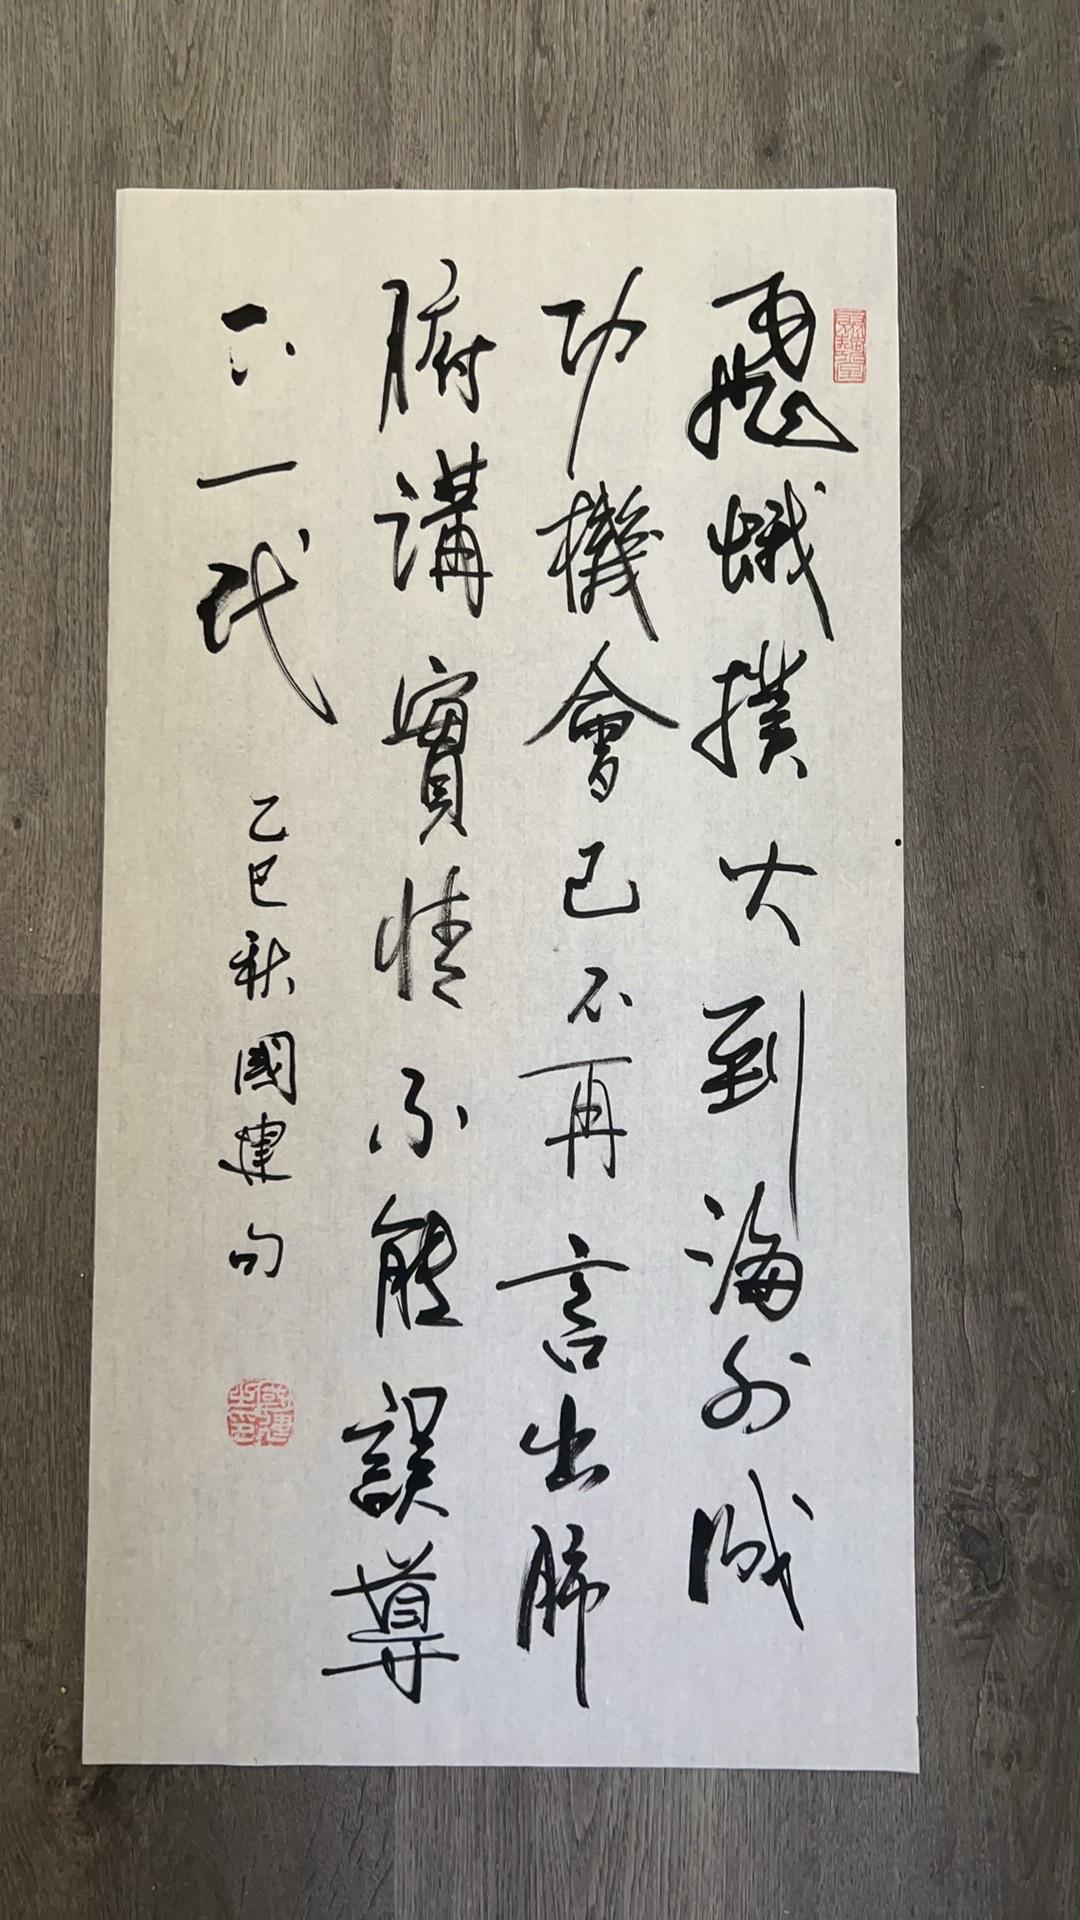 飛蛾撲火到海外成
功機會已不再言出肺
腑講實情不能誤導
下一代
乙巳秋國建句
國建之印